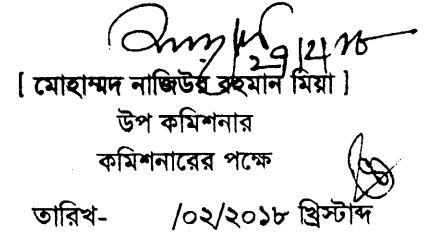 ২৭/২/১৮
[ মোহাম্মদ নাজিউর রহমান মিয়া ]
উপ কমিশনার
কমিশনারের পক্ষে
তারিখ- /০২/২০১৮ খ্রিস্টাব্দ